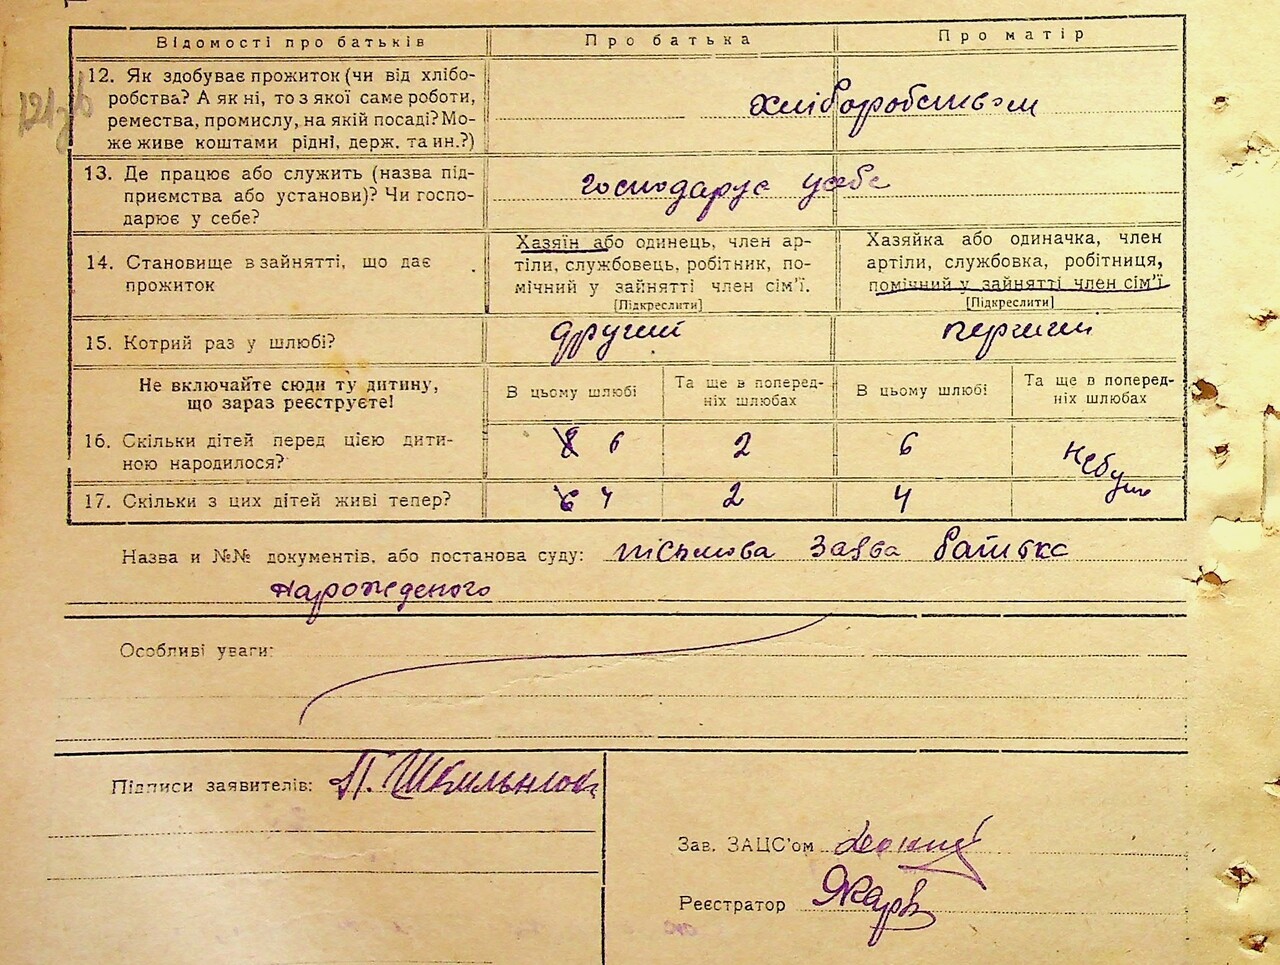 Відомості про батьків
Про батька
Про матір
12. Як здобуває прожиток (чи від хлібо-
робства? А як ні, то з якої саме роботи,
ремества, промислу, на якій посаді? Мо-
же живе коштами рідні, держ. та ин.?)
хліборобством
13. Де працює або служить (назва під-
приємства або установи)? Чи госпо-
дарює у себе?
господарує у себе
14. Становище в зайнятті, що дає
прожиток
Хазяїн або одинець, член ар-
тілі, службовець, робітник, по-
мічний у зайнятті член сім'ї.
[Підкреслити]
Хазяйка або одиначка, член
артіли, службовка, робітниця,
помічний у зайнятті член сім'ї
[Підкреслити]
15. Котрий раз у шлюбі?
другий
перший
Не включайте сюди ту дитину,
що зараз реєструєте!
В цьому шлюбі
Та ще в поперед-
ніх шлюбах
В цьому шлюбі
Та ще в поперед-
ніх шлюбах
16. Скільки дітей перед цією дити-
ною народилося?
8 6
2
6
небуло
17. Скільки з цих дітей живі тепер?
6 4
2
4
Назва и №№ документів, або постанова суду: письмова заява батька
народженого
Особливі уваги:
Підписи заявителів: П. Шкільнюк
Зав. ЗАЦС'ом
Реєстратор